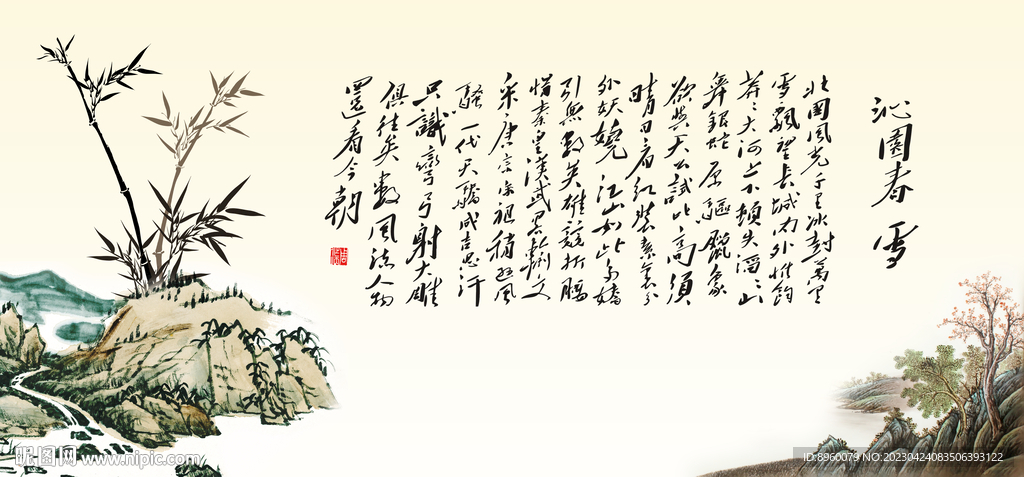 沁園春 雪
北國風光千里冰封萬里
雪飄望長城內外惟餘
莽〻大河上下頓失滔〻山
舞銀蛇原驅臘象
欲與天公試比高須
晴日看紅裝素裹分
外妖嬈江山如此多嬌
引無數英雄競折腰
惜秦皇漢武略輸文
采唐宗宋祖稍遜風
騷一代天驕成吉思汗
只識彎弓射大雕
俱往矣數風流人物
還看今朝
昵图网 www.nipic.com
ID:8960079 NO:20230424083506393122